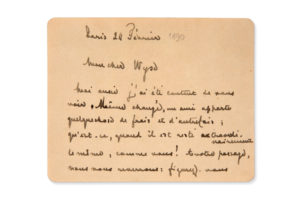 Paris 22 Février 1893
Mon cher Wysd
Moi aussi j'ai été content de vous
voir. Même changé, un ami apporte
quelquechose de frais et d'autrefois ;
qu'est-ce, quand il est resté extraordi-
nairement
le même, comme vous ! Tenotre passage,
nous nous vous